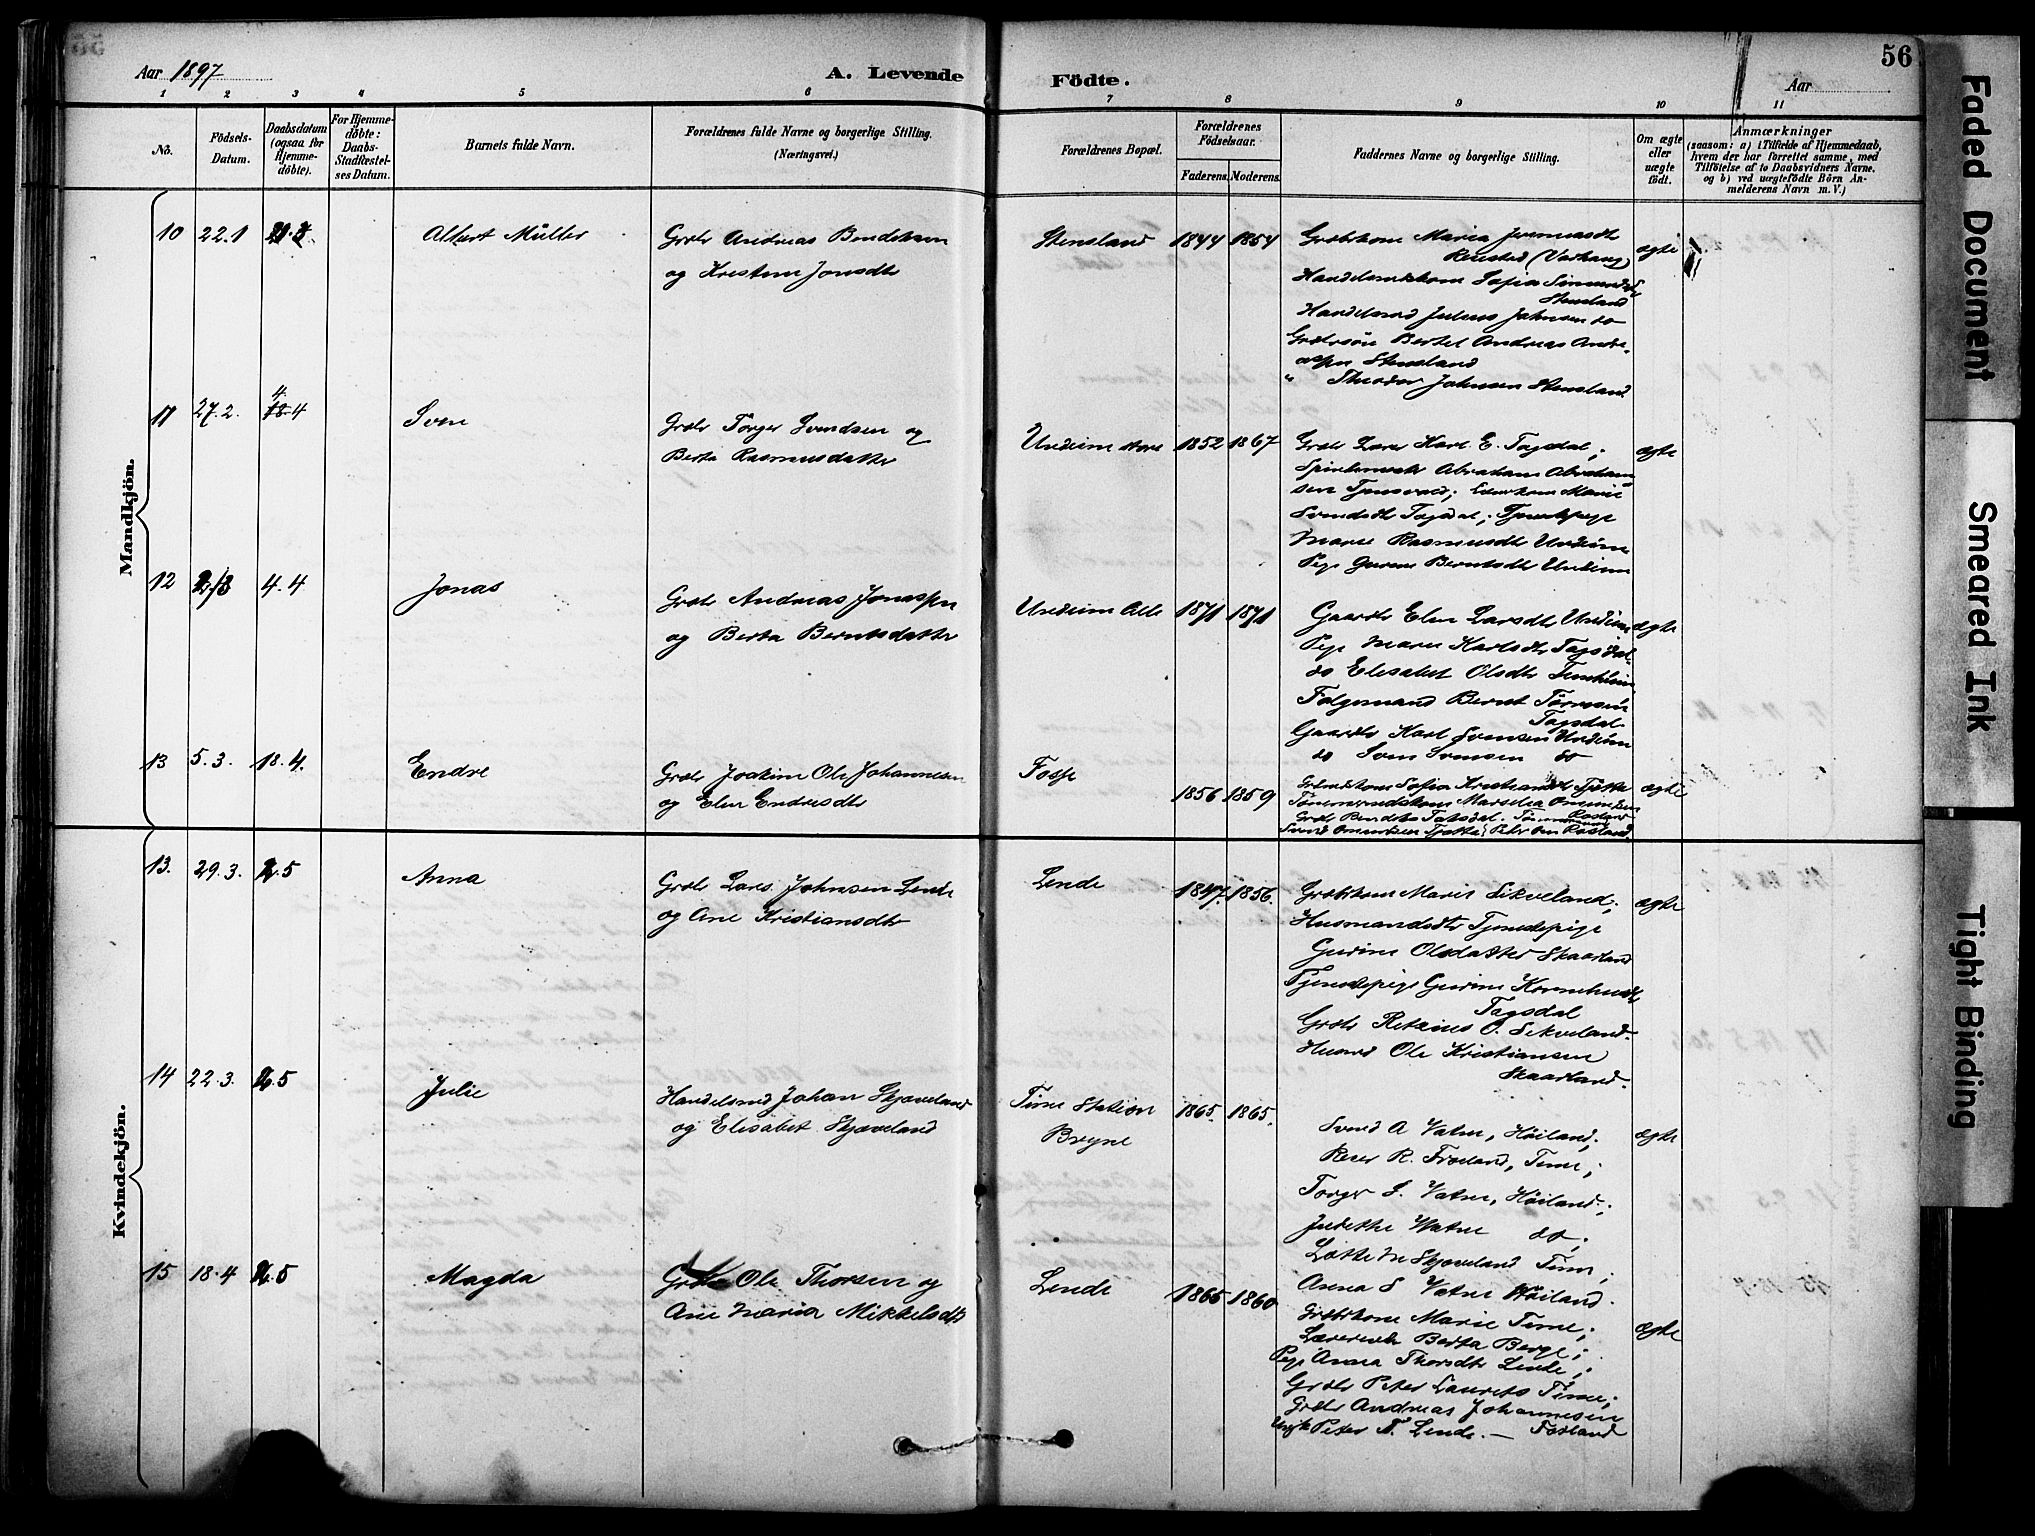 56
Aar 1897
A. Levende Födte.
Aar
1 2 3 4 5 6 7 8 9 10 11
No.
Födsels-Datum.
Daabsdatum (ogsaa for Hjemme-döbte).
For Hjemme-döbte: Daabs-Stadfæstel-ses Datum.
Barnets fulde Navn.
Forældrenes fulde Navne og borgerlige Stilling.
(Næringsvei.)
Forældrenes Bopæl.
Forældrenes Födselsaar.
Faderens. Moderens.
Faddernes Navne og borgerlige Stilling.
Om ægte eller uægte födt.
Anmærkninger
(saasom: a) i Tilfælde af Hjemmedaab,
hvem der har forrettet samme, med
Tilföielse af to Daabsvidners Navne.
og b) ved uægtefödte Börn An-
melderens Navn m. V.)
Mandkjön.
10 22.1 Albert Müller
Grdbr Andreas Bendiksen
og Kristine Jonsdtr
Stensland 1844 1854
Grdbrkone Maria
(Varhaug)
Handelsmdskone Sofia
Stensland
Handelsmd Julius Johnsen do
Grdbrsön Bertel Andreas Andre-
assen Stensland
" Theodor Johnsen Stensland
ægte
11 27.2. 4. 18.4 Sven
Grdbr Törger Svendsen og
Berta Rasmusdatter
Undeim store 1852 1867
Grdbr Lars Karl E. Tagsdal;
Abraham Abraham-
sen Tjensvold; Marie
Svendsdtr Tagsdal; Tjenestpige
Marie Rasmusdtr Undeim
Pige Gurine Berntsdtr Undeim
ægte
12 4.4 Jonas
Grdbr Andreas Jonassen
og Berta Berntsdatter
Undeim lille 1871 1871
Gaardbr Elen Larsdtr Undeim
Pige Maren Karlsdtr Tagsdal
do Elisabet Olsdtr
Folgemand Bernt Törresen
Tagsdal
Gaardbr Karl Svensen Undeim
do Sven Svensen do
ægte
13 5.3. 18.4. Endre
Grdbr Joakim Ole Johannesen
og Elen Endresdtr
Fosse
1856 1859
Sofia Tjötta
Rosland
Grdbr Bendik Tagsdal.
Tjötta, Rosland
ægte
Kvindekjön.
13. 29.3. 5 Anna
Grdbr Lars Johnsen Lende
og Ane Kristiansdtr
Lende 1847. 1856.
Grdbrkone Maris Sikveland;
Husmandsdtr Tjenestepige
Gurine Olsdatter Skaarland
Tjenestepige Gurine
Tagsdal
Grdbr Retzius O. Sikveland.
Husmd Ole Kristiansen
Skaarland.
ægte
14 22.3. 5 Julie
Handelsmd Johan Skjæveland
og Elisabet Skjæveland
Time Station
Bryne
1865. 1865.
Svend A Vatne, Höiland;
Peder R. Fröland, Time;
Torger S. Vatne, Höiland;
Judithe Vatne do;
Lotte M Skjæveland Time;
Anna S Vatne Höiland.
ægte
15 18.4 5 Magda
Grdbr Ole Thorsen og
Ane Maria Mikkelsdtr
Lende 1865 1860
Grdbrkone Marie Time;
Lærerinde Berta Berge;
Pige Anna Thorsdtr Lende;
Grdbr Peter Laurits Time;
Grdbr Andreas Johannesen
Ungk Peter T. Lende. — Fosland
ægte
Faded Document
Smeared Ink
Tight Binding